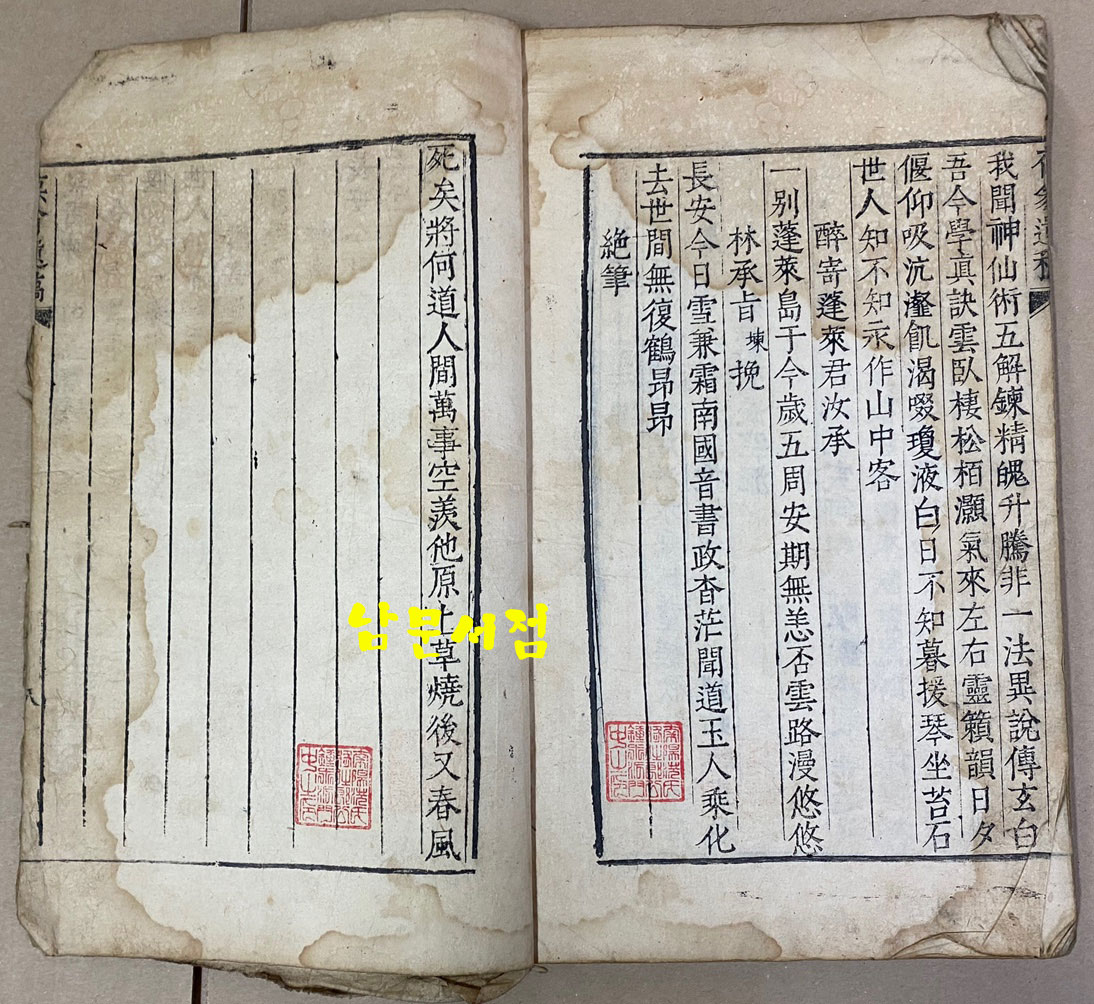 我聞神仙術五解鍊精魄升騰非一法異說傳玄白
吾今學眞訣雲臥棲松栢灝氣來左右靈籟韻日夕
偃仰吸沆瀣飢渴啜瓊液白日不知暮援琴坐苔石
世人知不知永作山中客
醉寄蓬萊君汝承
一別蓬萊島于今歲五周安期無恙否雲路漫悠悠
林承旨㙉挽
長安今日雪兼霜南國音書政杳茫聞道玉人乘化
去世間無復鶴昻昻
絶筆
死矣將何道人間萬事空羨他原上草燒後又春風
남문서점